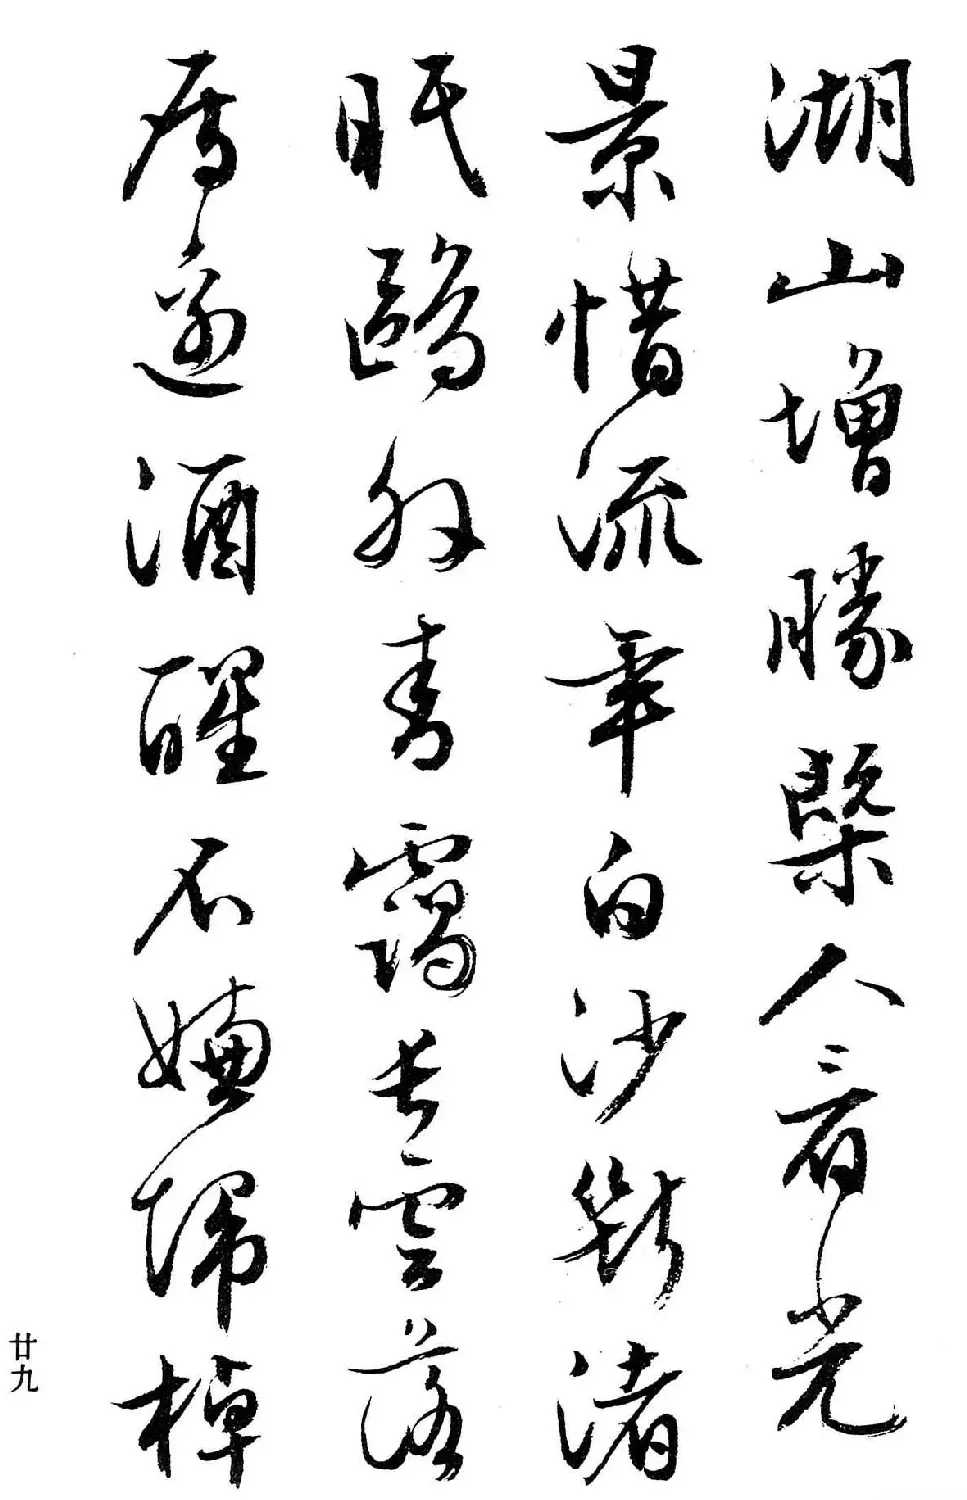 湖山增勝槩人看光
景惜流年白沙斷渚
眠鷗外青靄長雲落
雁邊酒醒不嫌歸棹
廿九